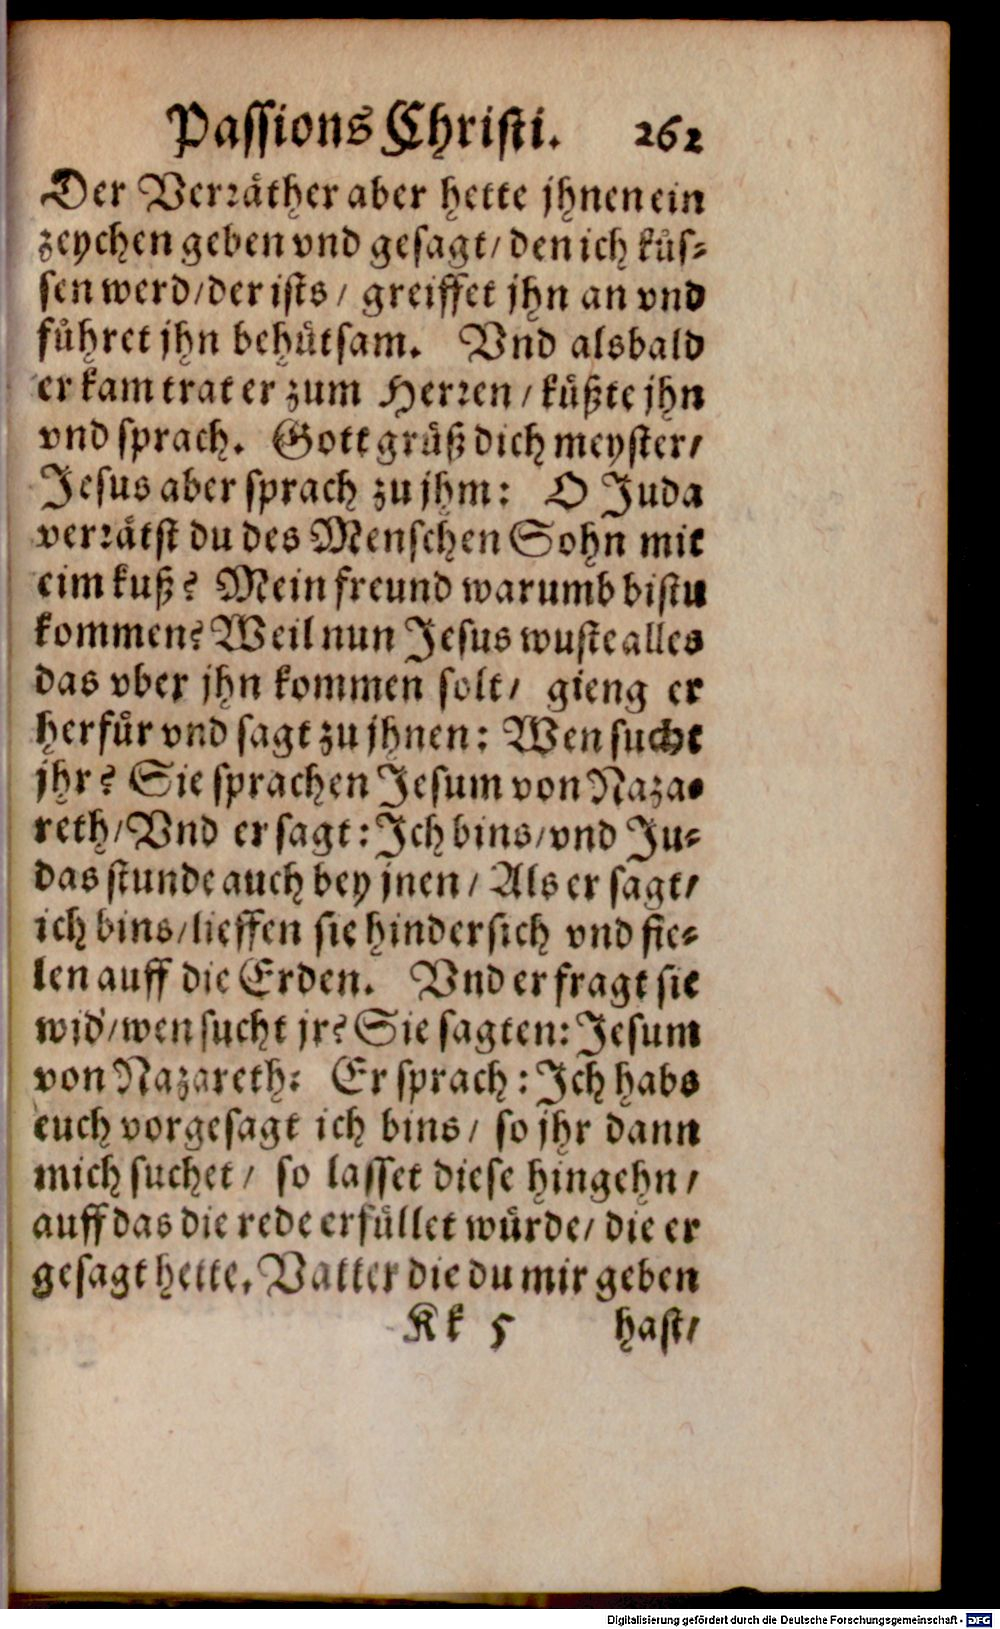 Passions Christi. 262
Der Verräther aber hette jhnen ein
zeychen geben vnd gesagt/ den ich küs-
sen werd/ der ists/ greiffet jhn an vnd
führet jhn behütsam. Vnd alsbald
er kam trat er zum Herren/ küßte jhn
vnd sprach. Gott grüß dich meyster/
Jesus aber sprach zu jhm: O Juda
verrätst du des Menschen Sohn mit
eim kuß? Mein freund warumb bistu
kommen? Weil nun Jesus wuste alles
das vber jhn kommen solt/ gieng er
herfür vnd sagt zu jhnen: Wen sucht
jhr? Sie sprachen Jesum von Naza-
reth/ Vnd er sagt: Ich bins/ vnd Ju-
das stunde auch bey jnen/ Als er sagt/
ich bins/ lieffen sie hindersich vnd fie-
len auff die Erden. Vnd er fragt sie
wid'/ wen sucht jr? Sie sagten: Jesum
von Nazareth: Er sprach: Ich habs
euch vorgesagt ich bins/ so jhr dann
mich suchet/ so lasset diese hingehn/
auff das die rede erfüllet würde/ die er
gesagt hette. Vatter die du mir geben
Kk 5 hast/
Digitalisierung gefördert durch die Deutsche Forschungsgemeinschaft - DFG